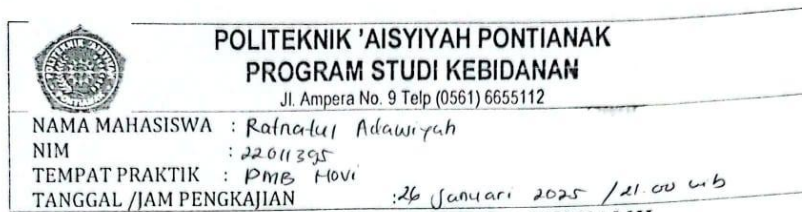 POLITEKNIK 'AISYIYAH PONTIANAK
PROGRAM STUDI KEBIDANAN
Jl. Ampera No. 9 Telp (0561) 6655112
NAMA MAHASISWA : Ratnatul Adawiyah
NIM : 22011395
TEMPAT PRAKTIK : PMB Hovi
TANGGAL /JAM PENGKAJIAN :26 Januari 2025 /21.00 wib